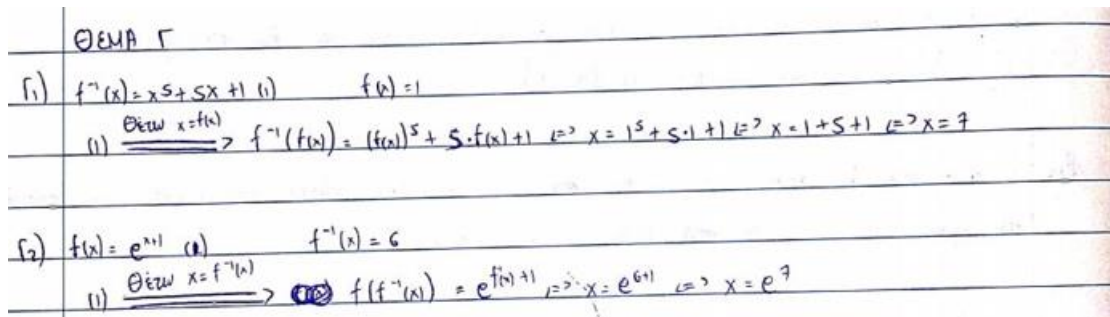 ΘΕΜΑ Γ
Γ₁) f⁻¹(x) = x⁵ + 5x + 1 (1) f(x) = 1
(1) Θέτω x=f(x) => f⁻¹(f(x)) = (f(x))⁵ + 5·f(x) + 1 <=> x = 1⁵ + 5·1 + 1 <=> x = 1 + 5 + 1 <=> x = 7
Γ₂) f(x) = eˣ⁺¹ (1) f⁻¹(x) = 6
(1) Θέτω x = f⁻¹(x) => f(f⁻¹(x)) = e^{f⁻¹(x)+1} <=> x = e⁶⁺¹ <=> x = e⁷